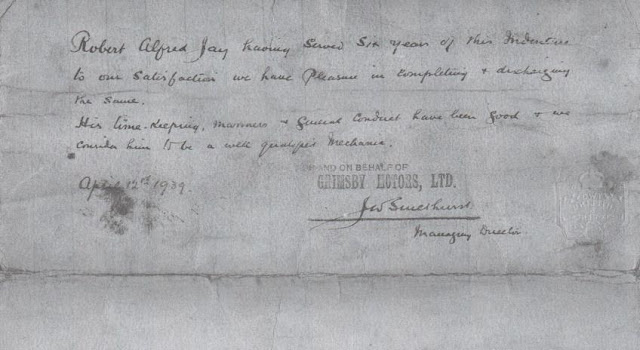 Robert Alfred Jay having served six years of this Indenture
to our satisfaction we have pleasure in completing & discharging
the same.
His time-keeping, manners & general conduct have been good & we
consider him to be a well qualified Mechanic.
AND ON BEHALF OF
GRIMSBY MOTORS, LTD.
April 12th 1939.
Managing Director.